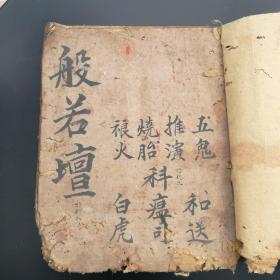 五鬼 和送
推演 瘟司
燒胎 科
火 白虎
般若壇